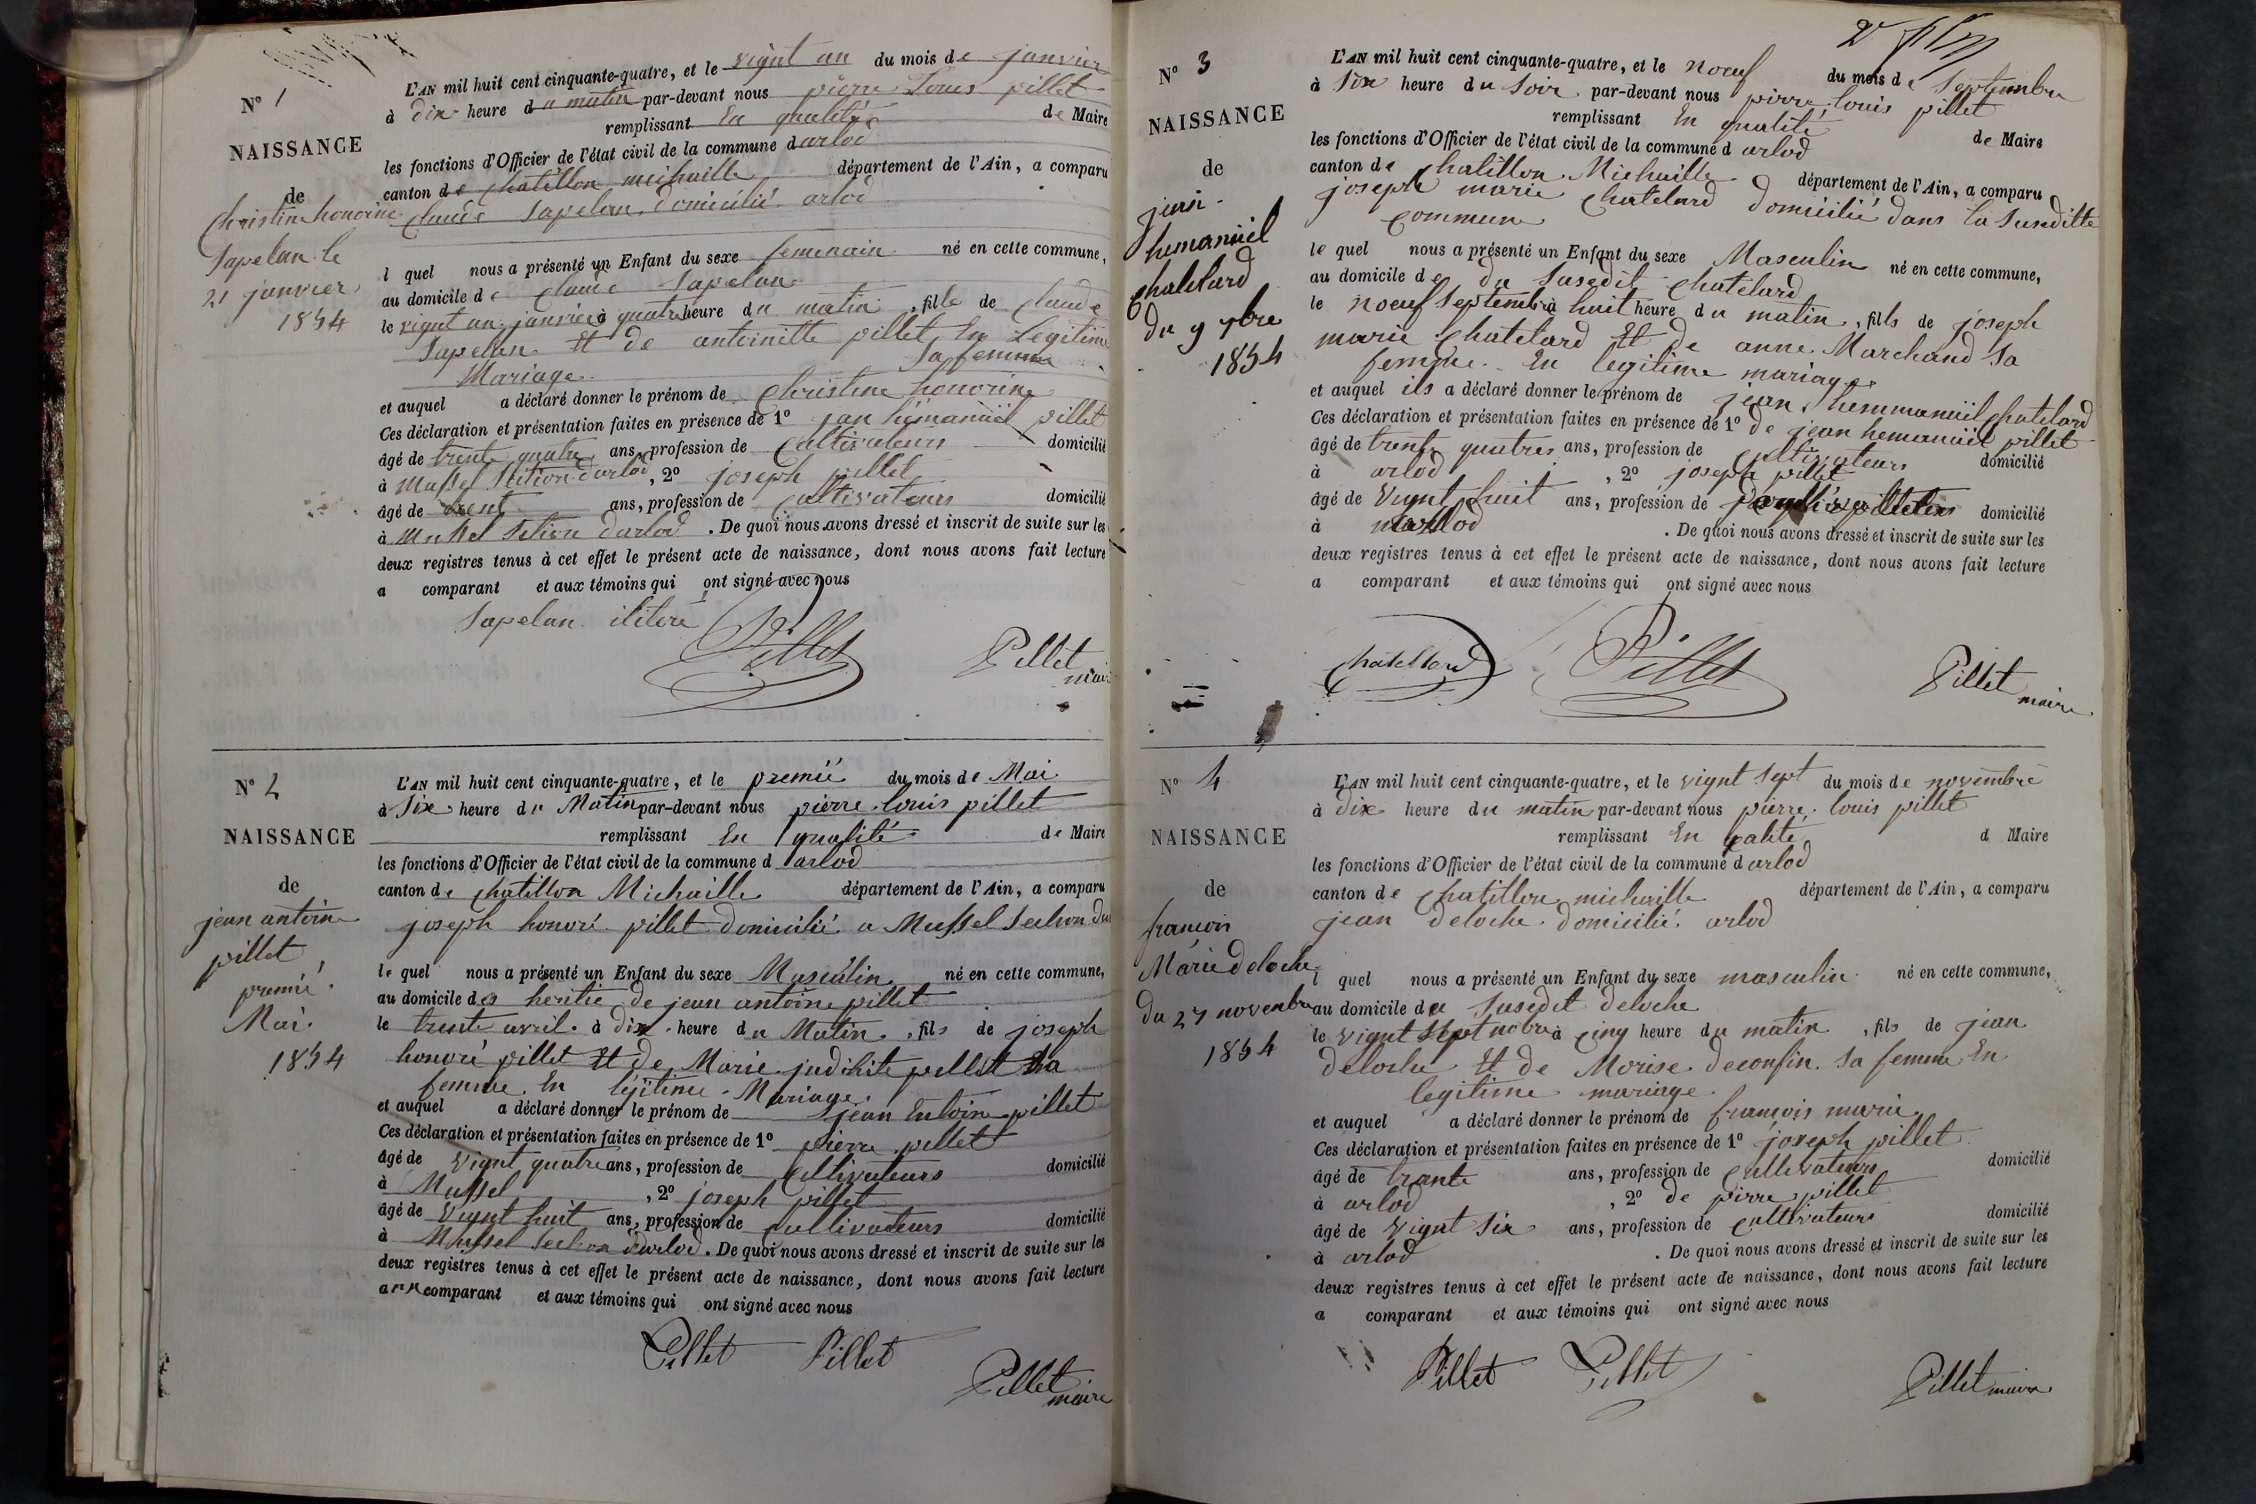 N° 1
NAISSANCE
de
Christine honorine
Sapelan le
21 janvier
1854
L'AN mil huit cent cinquante-quatre, et le vignt un du mois de janvier
à dix heure du matin par-devant nous pierre Louis pillet
remplissant En qualité de Maire
les fonctions d'Officier de l'état civil de la commune d arlod
canton de Chatillon michaille département de l'Ain, a comparu
Claude Sapelan domicilié arlod
l quel nous a présenté un Enfant du sexe femenain né en cette commune,
au domicile de Claude Sapelan
le vignt un janvier à quatre heure du matin, fille de Claude
Sapelan Et de antoinette pillet En Legitime
Mariage Sa femme
et auquel a déclaré donner le prénom de Christine honorine
Ces déclaration et présentation faites en présence de 1° jan hémanüel pillet
âgé de trent quatre ans, profession de Cultivateurs domicilié
à Mussel Setion d'arlod, 2° joseph pillet
âgé de trent ans, profession de Cultivateurs domicilié
à Mussel Setion d'arlod. De quoi nous avons dressé et inscrit de suite sur les
deux registres tenus à cet effet le présent acte de naissance, dont nous avons fait lecture
a comparant et aux témoins qui ont signé avec nous
Sapelan ilitéré Pillet Pillet
maire
N° 2
NAISSANCE
de
jean antoine
pillet
premié
Mai
1854
L'AN mil huit cent cinquante-quatre, et le premié du mois de Mai
à Six heure du Matin par-devant nous pierre louis pillet
remplissant En qualité de Maire
les fonctions d'Officier de l'état civil de la commune d arlod
canton de Chatillon Michaille département de l'Ain, a comparu
joseph honoré pillet domicilié a Mussel Section
le quel nous a présenté un Enfant du sexe Masculin né en cette commune,
au domicile des heritié de jean antoine pillet
le trente avril à dix heure du Matin, fils de joseph
honoré pillet Et de Marie judihite pillet Sa
femme En lejitime Mariage
et auquel a déclaré donner le prénom de jean antoine pillet
Ces déclaration et présentation faites en présence de 1° pierre pillet
âgé de vignt quatre ans, profession de Cultivateurs domicilié
à Mussel, 2° joseph pillet
âgé de vignt huit ans, profession de Cultivateurs domicilié
à Mussel Section d'arlod. De quoi nous avons dressé et inscrit de suite sur les
deux registres tenus à cet effet le présent acte de naissance, dont nous avons fait lecture
a comparant et aux témoins qui ont signé avec nous
Pillet Pillet Pillet
maire
2e film
N° 3
NAISSANCE
de
hemanüel
Chatelard
du 9 7bre
1854
L'AN mil huit cent cinquante-quatre, et le noeuf du mois de Septembre
à Six heure du Soir par-devant nous pierre louis pillet
remplissant En qualité de Maire
les fonctions d'Officier de l'état civil de la commune d arlod
canton de Chatillon Michaille département de l'Ain, a comparu
joseph marie Chatelard domicilié dans la Susditte
Commune
le quel nous a présenté un Enfant du sexe Masculin né en cette commune,
au domicile de du Susedit Chatelard
le noeuf Septembre à huit heure du matin, fils de joseph
marie Chatelard Et de anne Marchand Sa
femme En legitime mariage
et auquel ils a déclaré donner le prénom de jean hemmanüel Chatelard
Ces déclaration et présentation faites en présence de 1° de jean hemanüel pillet
âgé de trente quatres ans, profession de Cultivateurs domicilié
à arlod, 2° joseph pillet
âgé de vignt huit ans, profession de domicilié
à arlod. De quoi nous avons dressé et inscrit de suite sur les
deux registres tenus à cet effet le présent acte de naissance, dont nous avons fait lecture
a comparant et aux témoins qui ont signé avec nous
Chatellard Pillet Pillet
maire
N° 4
NAISSANCE
de
françois
Marie deloche
du 27 novembre
1854
L'AN mil huit cent cinquante-quatre, et le vignt Sept du mois de novembre
à dix heure du matin par-devant nous pierre louis pillet
remplissant En qalité d Maire
les fonctions d'Officier de l'état civil de la commune d arlod
canton de Chatillon michaille département de l'Ain, a comparu
jean deloche domicilié arlod
l quel nous a présenté un Enfant du sexe masculin né en cette commune,
au domicile du Susedit deloche
le vignt Sept nobre à Cinq heure du matin, fils de jean
deloche Et de Morise deconfin Sa femme En
legitime mariage
et auquel a déclaré donner le prénom de françois marie
Ces déclaration et présentation faites en présence de 1° joseph pillet
âgé de trante ans, profession de Cultivateurs domicilié
à arlod, 2° de pierre pillet
âgé de vignt Six ans, profession de Cultivateurs domicilié
à arlod. De quoi nous avons dressé et inscrit de suite sur les
deux registres tenus à cet effet le présent acte de naissance, dont nous avons fait lecture
a comparant et aux témoins qui ont signé avec nous
Pillet Pillet Pillet maire